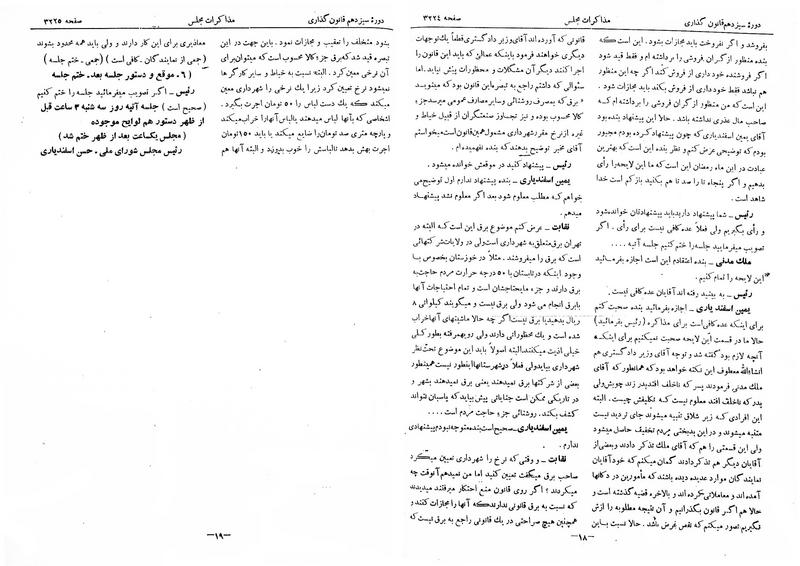 دوره سیزدهم قانون گذاری مذاکرات مجلس صفحه ۳۲۲۴
بفروشد و اگر نفروخت باید مجازات بشود . این است که
بنده منظور از گران فروشی را برداشته ام و فقط قید شود
اگر فروشنده خودداری از فروش کند اگر چه این منظور
هم نباشد فقط خودداری از فروش بکند باید مجازات شود .
این است که من منظور از گران فروشی را برداشته ام که
صاحب مال عذری نداشته باشد . حالا این پیشنهاد بنده بود
آقای یمین اسفندیاری که چون پیشنهاد کرده بودم مجبور
بودم که توضیحی عرض کنم و نظر بنده این است که بهترین
عبادت در این ماه رمضان این است که ما این لایحه را رأی
بدهیم و اگر پنجاه تا را صد تا هم بکنید بازکم است خدا
شاهد است .
رئیس ـ شما پیشنهاد دارید باید پیشنهادتان خوانده شود
و رأی بگیریم ولی فعلاً عده کافی نیست برای رأی . اگر
تصویب میفرمایید جلسه را ختم کنیم جلسه آتیه ....
ملك مدنی ـ بنده اعتقادم این است اجازه بفرمائید
این لایحه را تمام کنیم .
رئیس ـ به بینید رفته اند آقایان عده کافی نیست .
یمین اسفندیاری ـ اجازه بفرمائید بنده صحبت کنم
برای اینکه عده کافی است برای مذاکره (رئیس بفرمائید)
حالا ما در قسمت این لایحه صحبت نمیکنیم برای اینکه
آنچه لازم بود گفته شد و توجه آقای وزیر دادگستری هم
انشاءالله معطوف این نکته خواهد بود که همانطور که آقای
ملك مدنی فرمودند پسر که ناخلف افتد پدر زند چوبش ولی
پدر که ناخلف افتد معلوم نیست کـه تکلیفش چیست . البته
این افرادی کـه زیر شلاق تنبیه میشوند جای تردید نیست
متنبه میشوند و در این بدبختی مردم تخفیف حاصل میشود
ولی این قسمتی را هم که آقای ملك تذکر دادند و بعضی از
آقایان دیگر هم تذکر دادند گمان میکنم که خود آقایان
نمایندگان موارد عدیده دیده باشند که مأمورین در دکانها
آمده اند و معاملاتی کرده اند و بالاخره قضیه گذشته است و
حالا هم اگر قانون بگذرانیم و آن نتیجه مطلوبه را ازش
نگیریم تصور میکنم که نقص غرض باشد . حالا نسبت باین
قانونی که آورده اند آقای وزیر دادگستری قطعاً یك توجهات
دیگری خواهند فرمود باینکه عمالی که باید این قانون را
اجرا کنند دیگر آن مشکلات و محظورات پیش نیاید . اما
سئوالی که داشتم راجع به تبصره این قانون بود که میگوید
» برق که بمصرف روشنائی و سایر مصارف عمومی میرسد جزء
کالا محسوب بوده و نیز تجاوز صنعتگران از قبیل خیاط و
غیره از نرخ مقرر شهرداری مشمول همین قانون است میخواستم
آقای مخبر توضیح بدهند که بنده نفهمیده ام .
رئیس ـ پیشنهاد کنید در موقعش خوانده میشود .
یمین اسفندیاری ـ بنده پیشنهاد ندارم اول توضیح می
خواهم که مطلب معلوم شود بعد اگر معلوم نشد پیشنهاد
میدهم .
نقابت ـ عرض کنم موضوع برق این است کـه البته در
تهران برق متعلق به شهرداری است ولی در ولایات شرکتهائی
است که برق را میفروشند . مثلاً در خوزستان بخصوص با
وجود اینکه در تابستان با ۵۰ درجه حرارت مردم حاجت به
برق دارند و جزء مایحتاجشان است و تمام احتیاجات آنها
با برق انجام می شود ولی برق نیست و میگویند کیلواتی ۸
ریال بدهید یا برق نیست اگر چه حالا ماشینهای آنها خراب
شده است و یك محظوراتی دارند ولی رویهمرفته بطور کلی
خیلی اذیت میکنند البته اصولاً باید این موضوع تحت نظر
شهرداری بیاید ولی فعلاً در شهرستانها اینطور نیست همینطور
بعضی از شرکتها برق نمیدهند یعنی برق نمیدهند بشهر و
در تاریکی ممکن است جنایاتی پیش بیاید که پاسبان نتواند
کشف بکند . روشنائی جزء حاجت مردم است ....
یمین اسفندیاری ـ صحیح است بنده متوجه نبودم پیشنهادی
ندارم .
نقابت ـ و وقتی که نرخ را شهرداری تعیین میکرد
صاحب برق میگفت تعیین کنید اما من نمیدهم آنوقت چه
میکردند ؟ اگر روی قانون منع احتکار میرفتند میدیدند
که نسبت به برق قانونی ندارند که آنها را مجازات کنند و
همچنین هیچ صراحتی در یك قانونی راجع به برق نیست که
ـ۱۸ـ
دوره سیزدهم قانون گذاری مذاکرات مجلس صفحه ۳۲۲۵
بشود متخلف را تعقیب و مجازات نمود . باین جهت در این
تبصره قید شد که برق جزء کالا محسوب است که میتوان برای
آن نرخی معین کرد . البته نسبت به خیاط و سایر کارگر ها
نمیشود نرخ تعیین کرد زیرا یك نرخی را شهرداری معین
میکند که یك دست لباس را ۵۰ تومان اجرت بگیرد .
اشخاصی که بآنها لباس میدهند یا لباس آنها را خراب میکند
و پارچه متری صد تومان را ضایع میکند یا باید ۱۵۰ تومان
اجرت بهش بدهد تا لباسش را خوب بدوزد و البته آنها هم
معاذیری برای این کار دارند و لی باید همه محدود بشوند
(جمعی از نمایندگان ـ کافی است) (جمعی ـ ختم جلسه)
( ۶ ـ موقع و دستور جلسه بعد ـ ختم جلسه )
رئیس ـ اگر تصویب میفرمائید جلسه را ختم کنیم
(صحیح است) جلسه آتیه روز سه شنبه ۳ ساعت قبل
از ظهر دستور هم لوایح موجوده
(مجلس یکساعت بعد از ظهر ختم شد)
رئیس مجلس شورای ملی ـ حسن اسفندیاری
ـ۱۹ـ